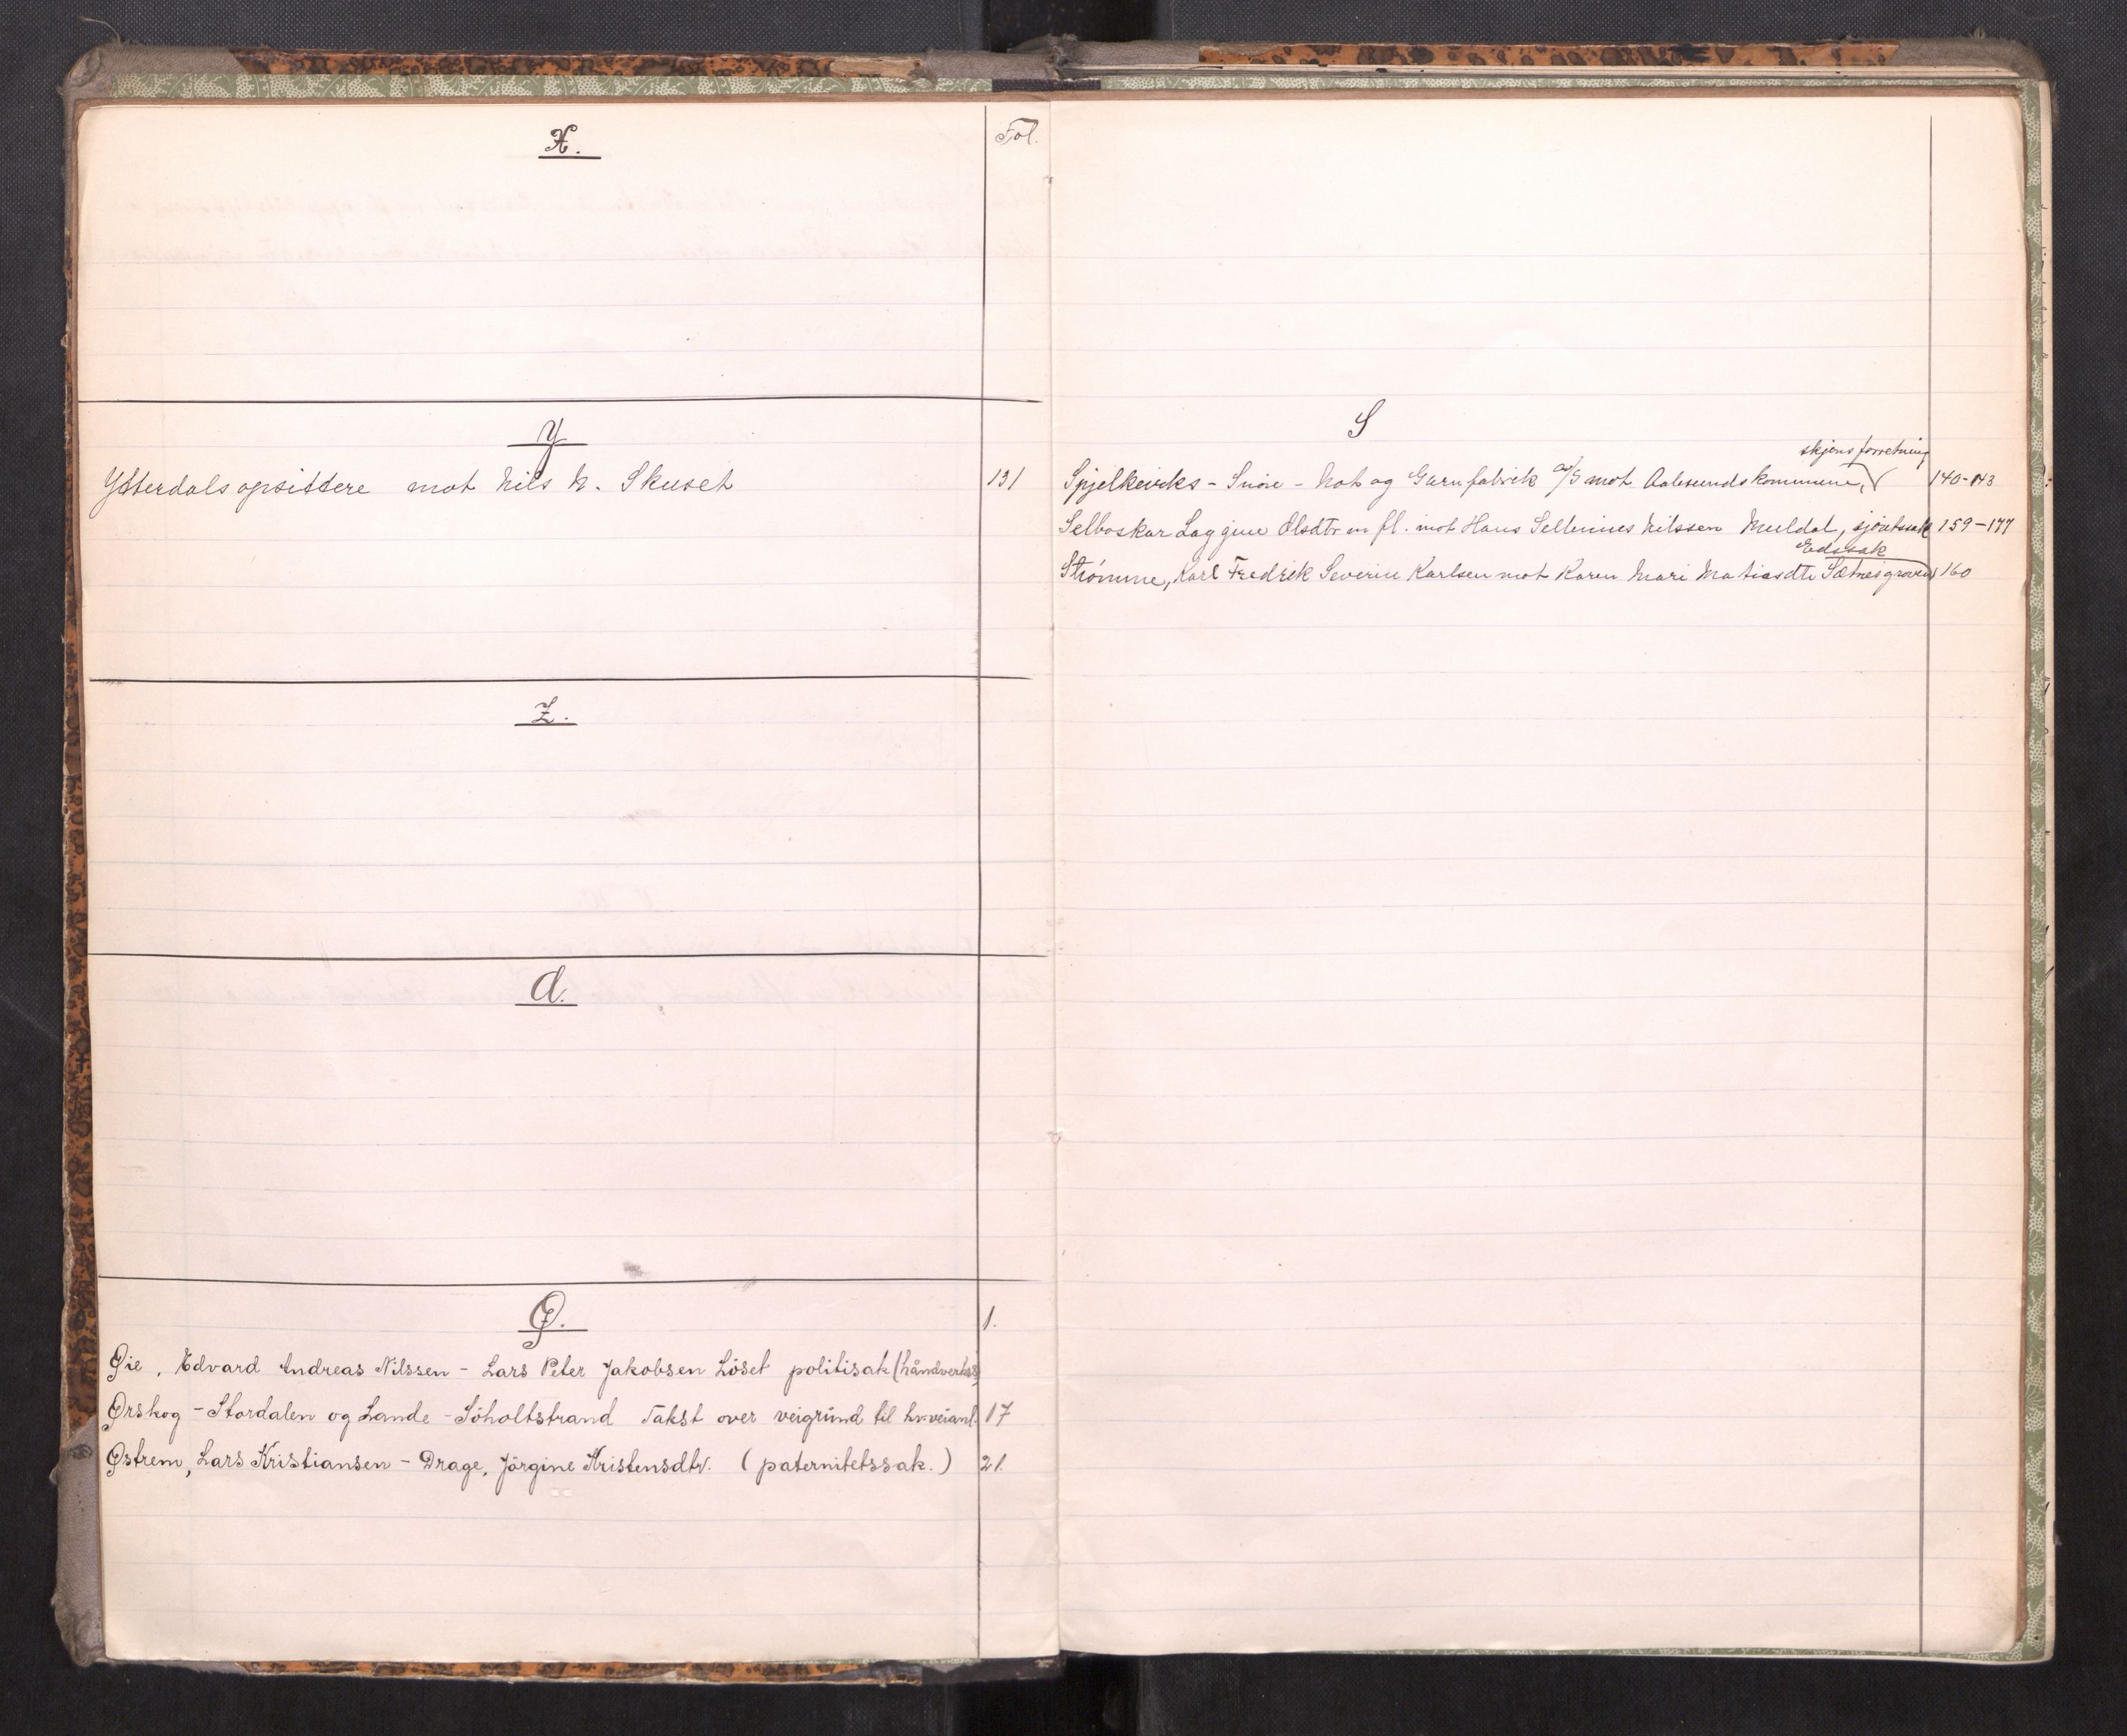 X.
Fol.
Y
Ytterdals opsittere mot Nils N. Skuset 131
Z.
Ø.
1.
Øie, Edvard Andreas Nilssen - Lars Peter Jakobsen Löset politisak (håndverkss)
Ørskog - Stordalen og Lande - Söholtstrand Takst over veigrund til hv.veianl. 17
Østrem, Lars Kristiansen - Drage, Jörgine Kristensdtr. (paternitetssak.) 21.
S
skjønsforretning
Spjelkeviks - Snøre - Not og Garnfabrik a/s mot Aalesunds kommune, 140-143
Selboskar Laggine Olsdtr m fl. mot Hans Sellenius Nilssen Muldal, sjøretssak 159-177
Edssak
Strømme, Karl Fredrik Severin Karlsen mot Karen Mari Matiasdtr Sætnesgraven 160